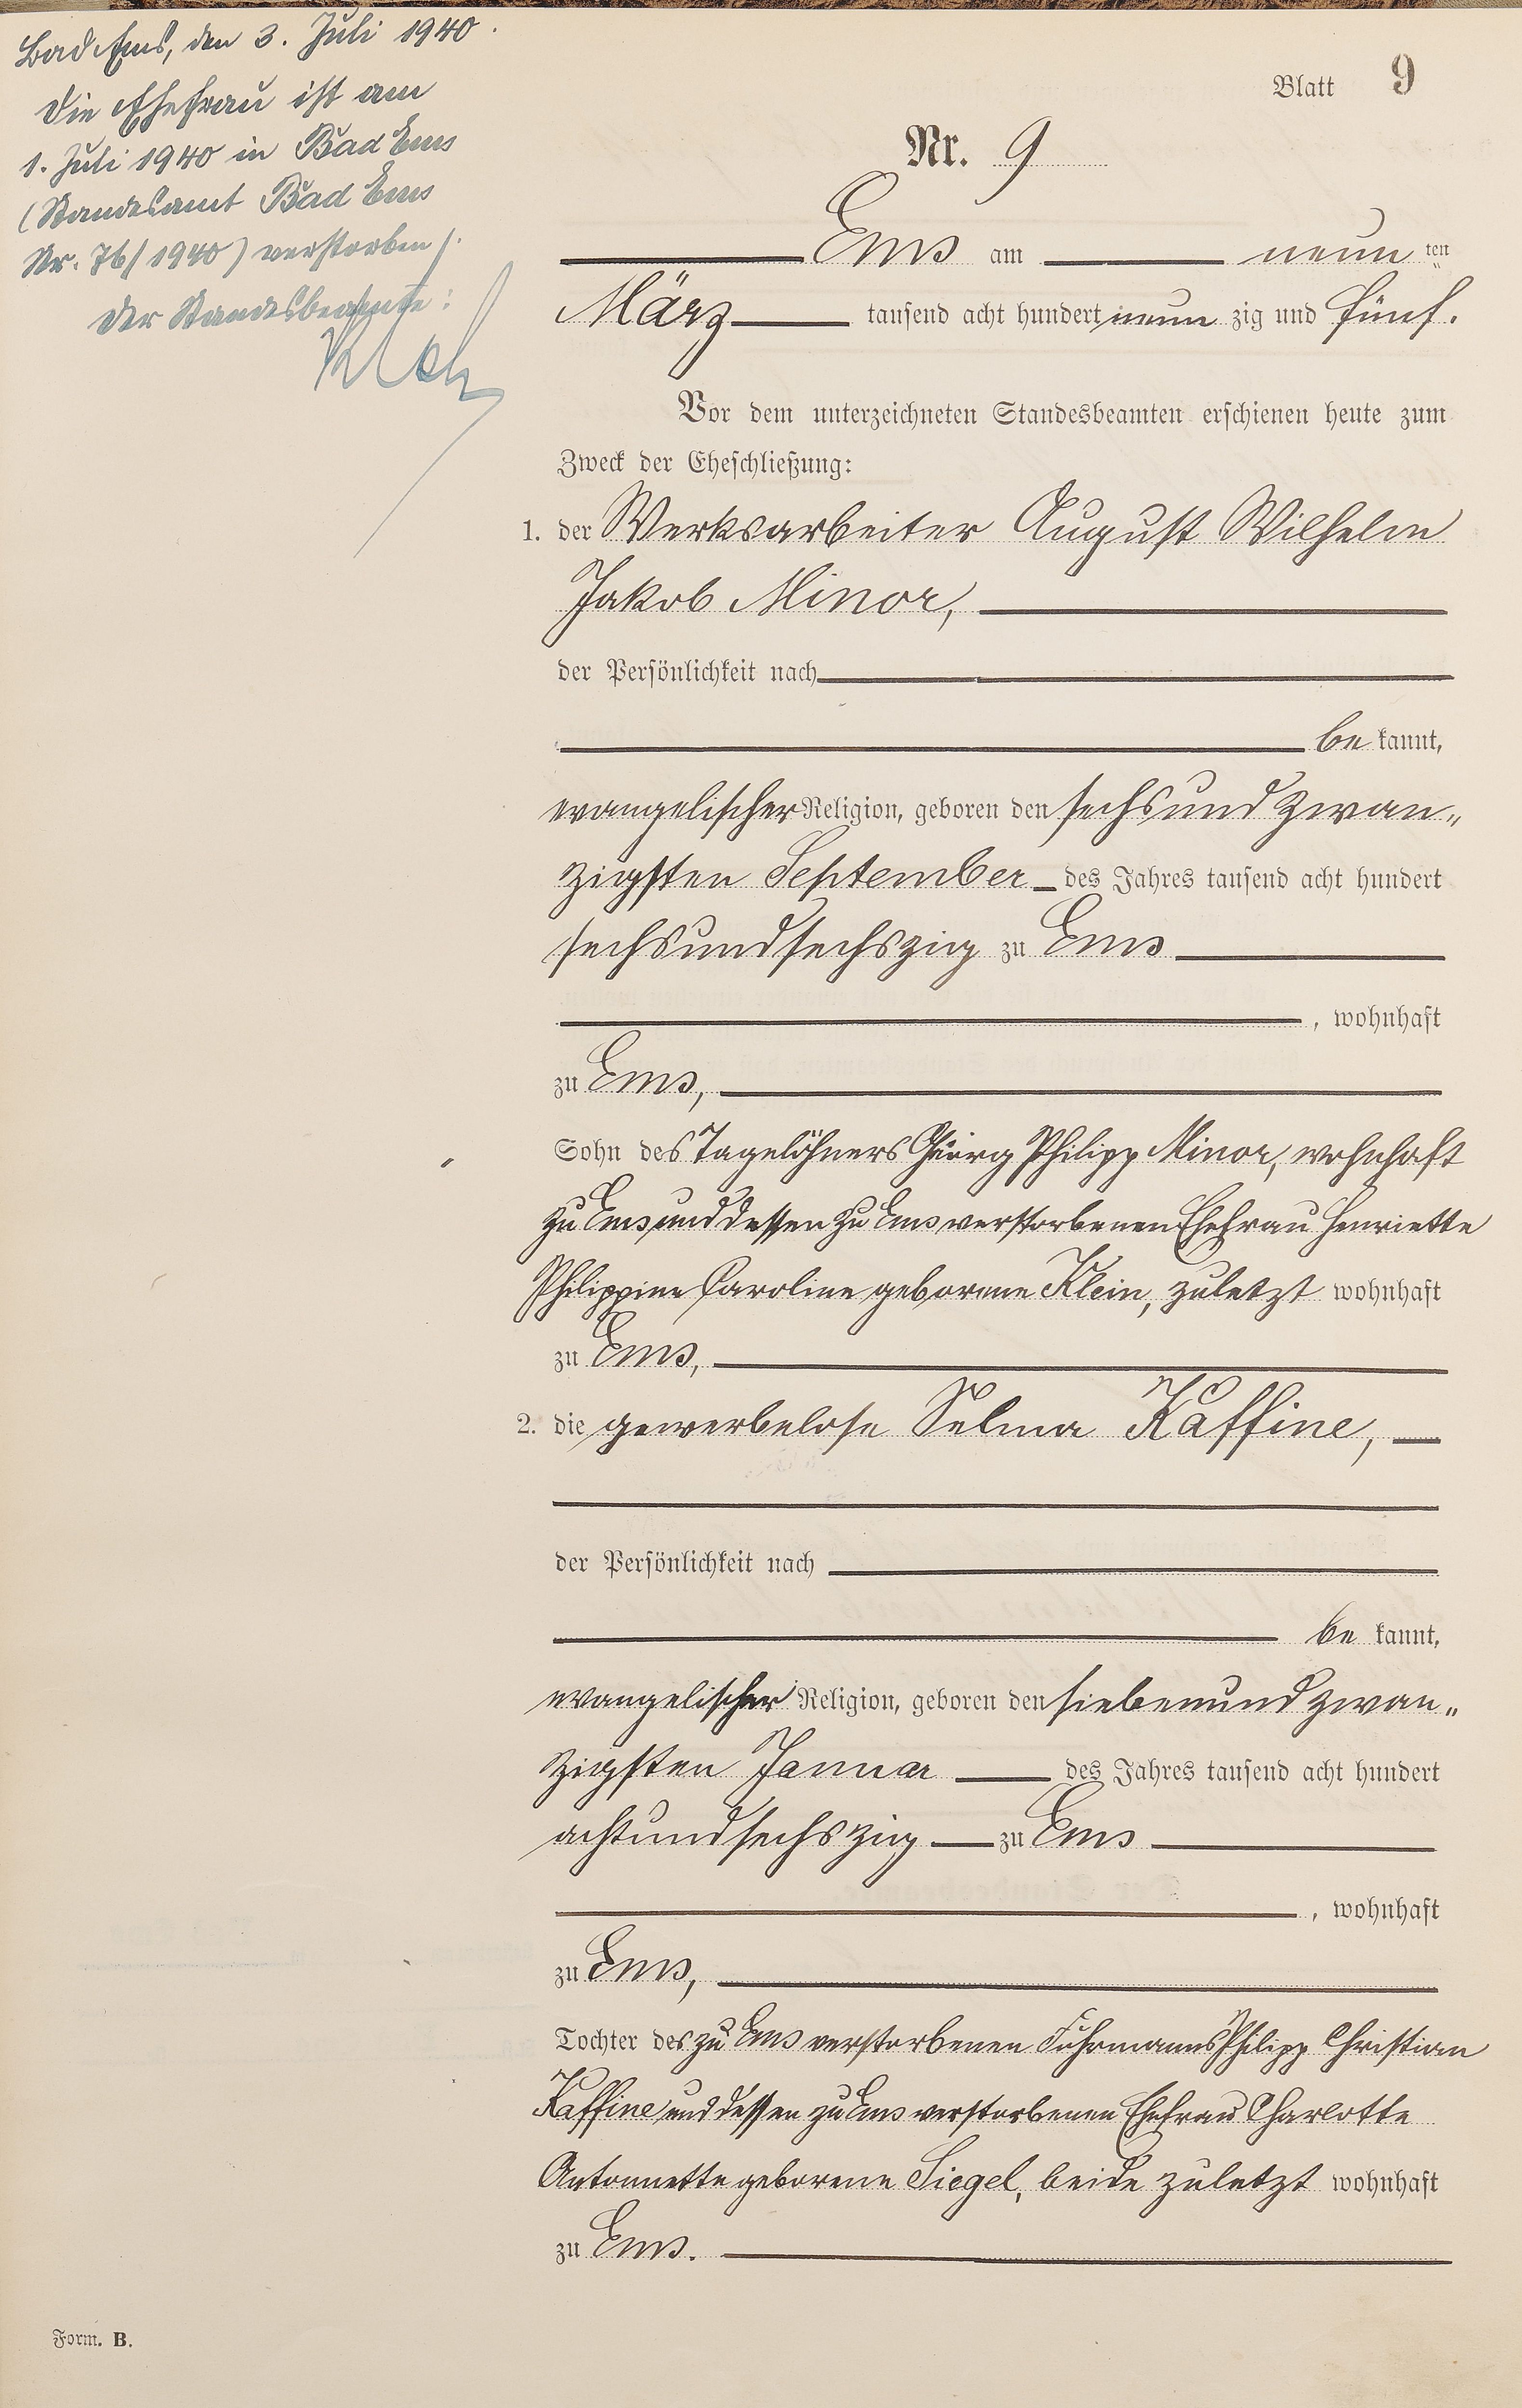 Bad Ems, den 3. Juli 1940.
Die Ehefrau ist am
1. Juli 1940 in Bad Ems
(Standesamt Bad Ems
Nr. 76/1940) verstorben/.
Der Standesbeamte:
Blatt 9
Nr. 9
Ems am neun ten
März tausend acht hundert neun zig und fünf.
Vor dem unterzeichneten Standesbeamten erschienen heute zum
Zweck der Eheschließung:
1. der Werksarbeiter August Wilhelm
Jakob Minor,
der Persönlichkeit nach
be kannt,
evangelischer Religion, geboren den sechsundzwan„
zigsten September des Jahres tausend acht hundert
sechsundsechszig zu Ems
, wohnhaft
zu Ems,
Sohn des Tagelöhners Georg Philipp Minor, wohnhaft
zu Ems und dessen zu Ems verstorbenen Ehefrau Henriette
Philippine Caroline geborene Klein, zuletzt wohnhaft
zu Ems,
2. die gewerbelose Selma Kaffine,
der Persönlichkeit nach
be kannt,
evangelischer Religion, geboren den siebenundzwan„
zigsten Januar des Jahres tausend acht hundert
achtundsechszig zu Ems
, wohnhaft
zu Ems,
Tochter des zu Ems verstorbenen Fuhrmanns Philipp Christian
Kaffine und dessen zu Ems verstorbenen Ehefrau Charlotte
Antonnette geborene Siegel, beide zuletzt wohnhaft
zu Ems.
Form. B.